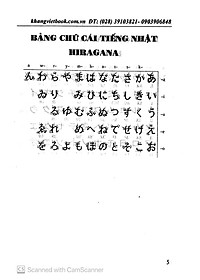 khangvietbook.com.vn ĐT: (028) 39103821- 0903906848
BẢNG CHỮ CÁI TIẾNG NHẬT
HIRAGANA
ん わ ら や ま は な た さ か あ
ゐ り み ひ に ち し き い
る ゆ む ふ ぬ つ す く う
ゑ れ め へ ね て せ け え
を ろ よ も ほ の と そ こ お
5
CS Scanned with CamScanner